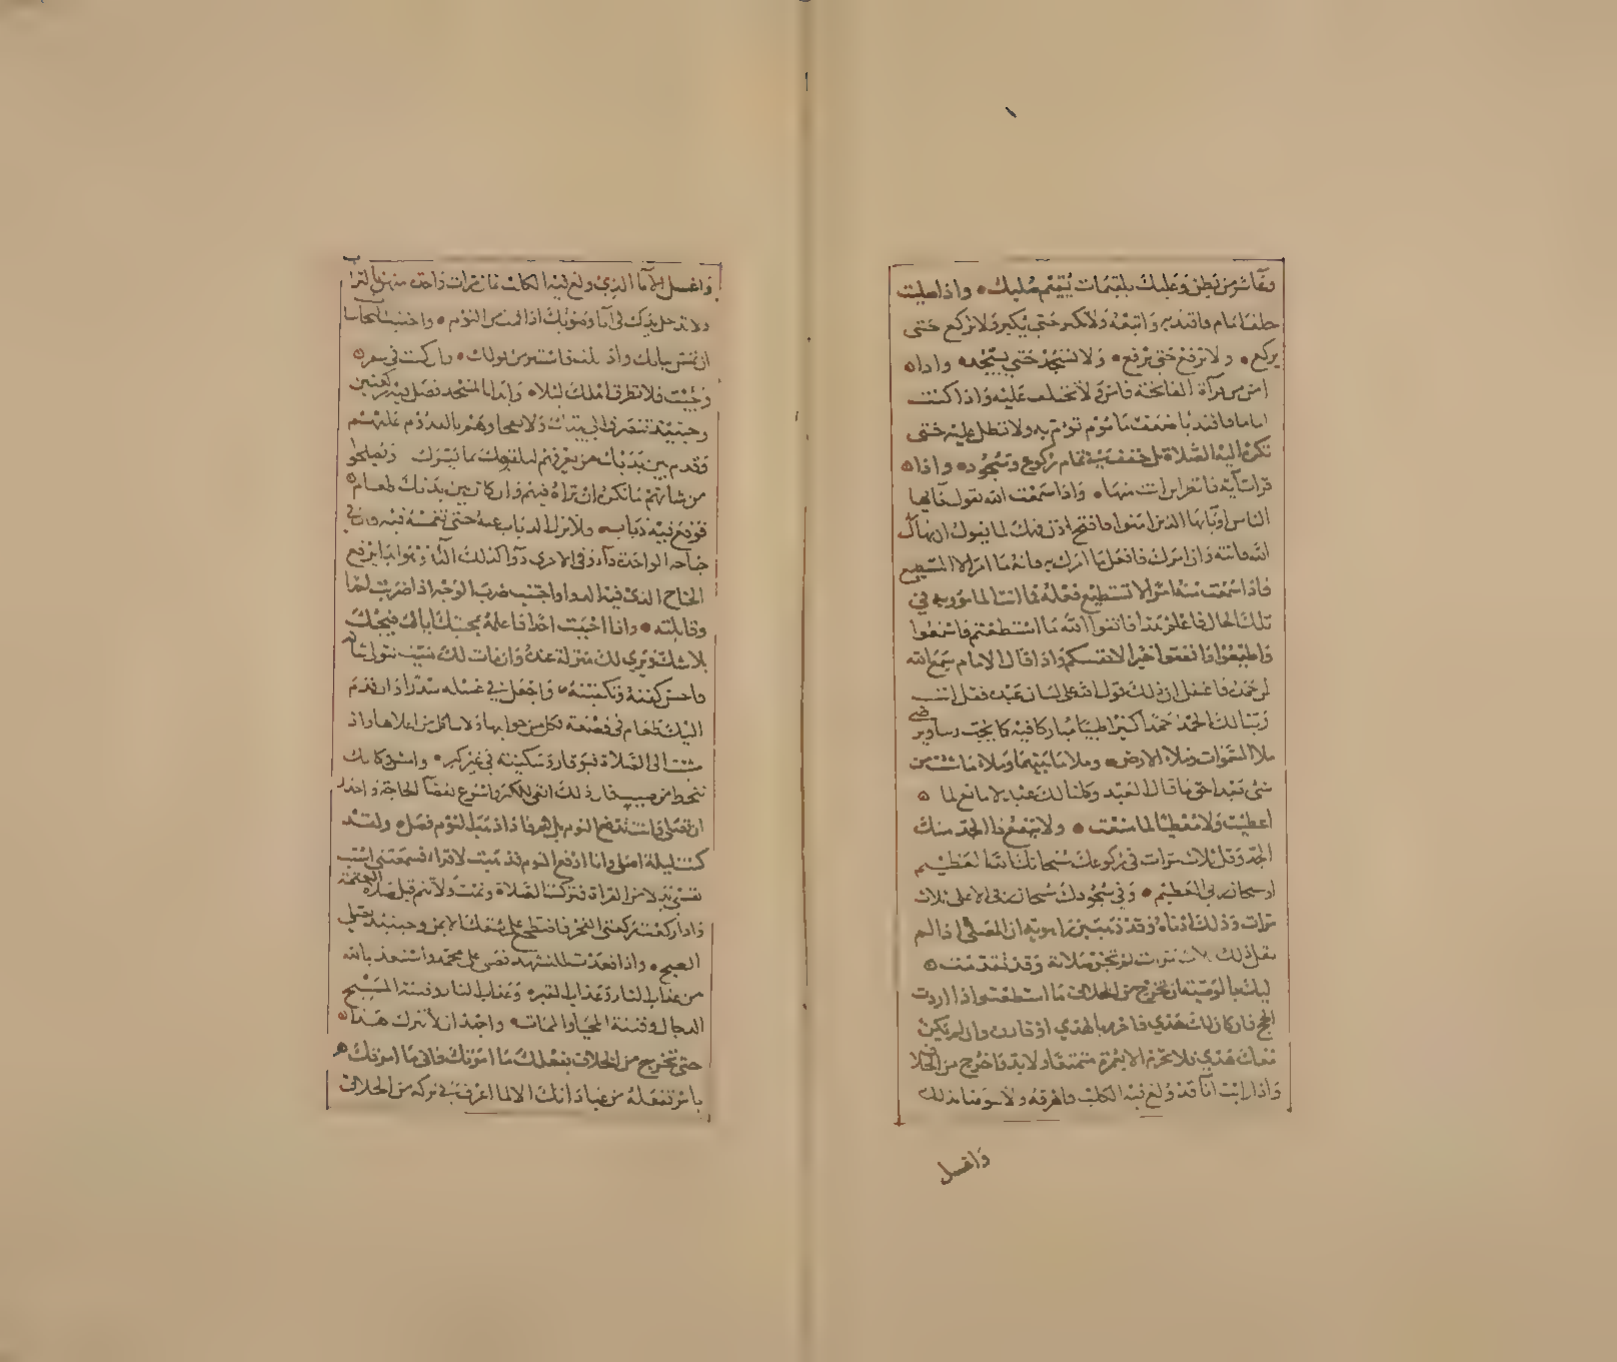 وعاشر من بطن وعليك بلقيمات يقمن صلبك واذا صليت
خلف امام فاقتد به واتبعه ولا تكبر حتى يكبر ولا تركع حتى
يركع ولا ترفع حتى يرفع ولا تسجد حتى يسجد واذا
امن من قرآة الفاتحة فامن ولا تختلف عليه واذا كنت
اماما فاقتد باضعف من توم به ولا تطل عليه حتى
تكره اليه الصلاة بل خفف في تمام ركوع وسجود واذا
قرات آية فانظر اين انت منها واذا سمعت الله يقول يا ايها
الناس او يا ايها الذين امنوا فافتح اذن فهمك لما يقول ان نهاك
الله فانته وان امرك فافعل ما امرك به فانه ما امر الا المستطيع
فاذا سمعت منه امرا لا تستطيع فعله فما انت المامور به في
تلك الحال فاعلم هذا فاتقوا الله ما استطعتم واسمعوا
واطيعوا وانفقوا خيرا لانفسكم واذا قال الامام سمع الله
لمن حمده فاعقل ان ذلك قول الله على لسان عبده فقل انت
ربنا لك الحمد حمدا كثيرا طيبا مباركا فيه كما يحب ربنا ويرضى
ملا السموات وملا الارض وملا ما بينهما وملا ما شئت من
شي بعد احق ما قال العبد وكلنا لك عبد لا مانع لما
اعطيت ولا معطي لما منعت ولا ينفع ذا الجد منك
الجد وقل ثلاث مرات في ركوعك سبحانك الله العظيم
او سبحان ربي العظيم وفي سجودك سبحان ربي الاعلى ثلاث
مرات وذلك ادناه وقد ذهب بن راهويه ان المصلي اذا لم
يقل ذلك ثلاث مرات لم تجز صلاته وقد تقدمت
اليك بالوصية ان تخرج من الخلاف ما استطعت واذا اردت
الحج فان كان لك هدي فاحرم بالهدي او قارن وان لم يكن
معك هدي فلا تحرم الا بعمرة متمتعا ولا بد فاخرج من الخلاف
واذا رايت انآ قد ولغ فيه الكلب فاهرقه ولا تتوضا بذلك
واغسل
واغسل الانآ الذي ولغ فيه الكلب ثمان مرات واحدة منهن بالتراب
ولا تدخل يدك في انآ وضوئك اذا قمت من النوم واجتنب النجاسات
ان تمس ثيابك واذا بلت فاستبر من بولك وان كنت في سفر
وجيت فلا تطرق اهلك ليلا وابدا بالمسجد فصل فيه ركعتين
وحينئذ تنصرف الى بيتك ولا تفجا وهم بالقدوم عليهم
وقدم بين يديك من يعرفهم لتلقيك بما يسرك ويصلحوا
من شانهم ما تكره ان تراه فيهم وان كان بين يديك طعام
فوقع فيه ذباب فلا تزل الذباب عنه حتى تغمسه فيه فان في
جناحه الواحد دآ وفي الاخرى دوآ كذلك التاذ وهو ابدا يرفع
الجناح الذي فيه الدوا واجتنب ضرب الوجه اذا ضربت احدا
وقابلته واذا احببت احدا فاعلمه بمحبتك اياه فيحبك
بلا شك ويري لك منزلة عنده وان مات لك ميت تتولى شانه
فاحسن كفنه وتكفينه واجعل في غسله سدرا واذا قدم
اليك طعام في قصعة فكل من جوانبها ولا تاكل من اعلاها واذا
مشيت الى الصلاة فبوقار وسكينة في غير كبر وامش كانك
تنحط من صبب فان ذلك انفى للكبر واسرع لقضآ الحاجة واحذر
ان تصلي وانت تدفع النوم بل نم فاذا ذهب النوم فصل ولقد
كنت ليلة اصلي وانا ادفع النوم فذهبت لاقرا فسمعتني اسب
نفسي بدلا من القراة فتركت الصلاة ونمت ولا تنم قبل صلاة العتمة
واذا ركعت ركعتي الفجر فاضطجع على شقك الايمن وحينئذ تصلي
الصبح واذا قعدت للتشهد فصل على محمد واستعذ بالله
من عذاب النار وعذاب القبر وعذاب النار وفتنة المسيح
الدجال وفتنة المحيا والممات واحذر ان لا تترك هذا
حتى تخرج من الخلاف بفعلك ما امرتك فاني ما امرتك
بامر تفعله من عباداتك الا لما اعرف في تركه من الخلاف